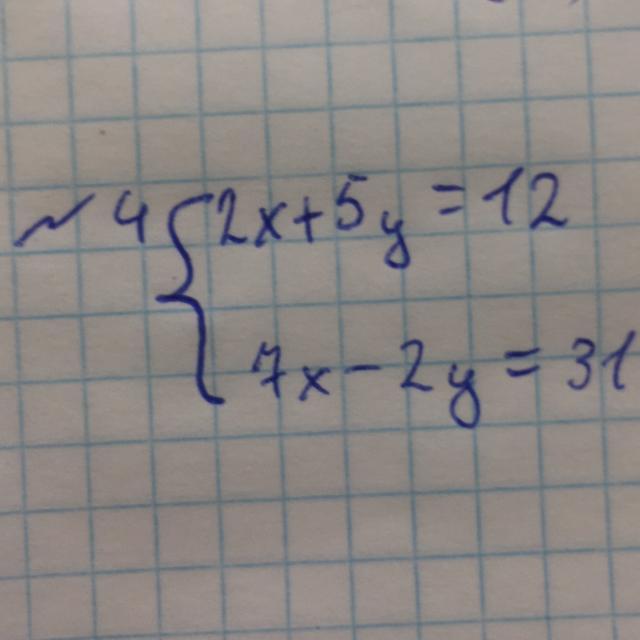 №4 { 2x + 5y = 12
7x - 2y = 31